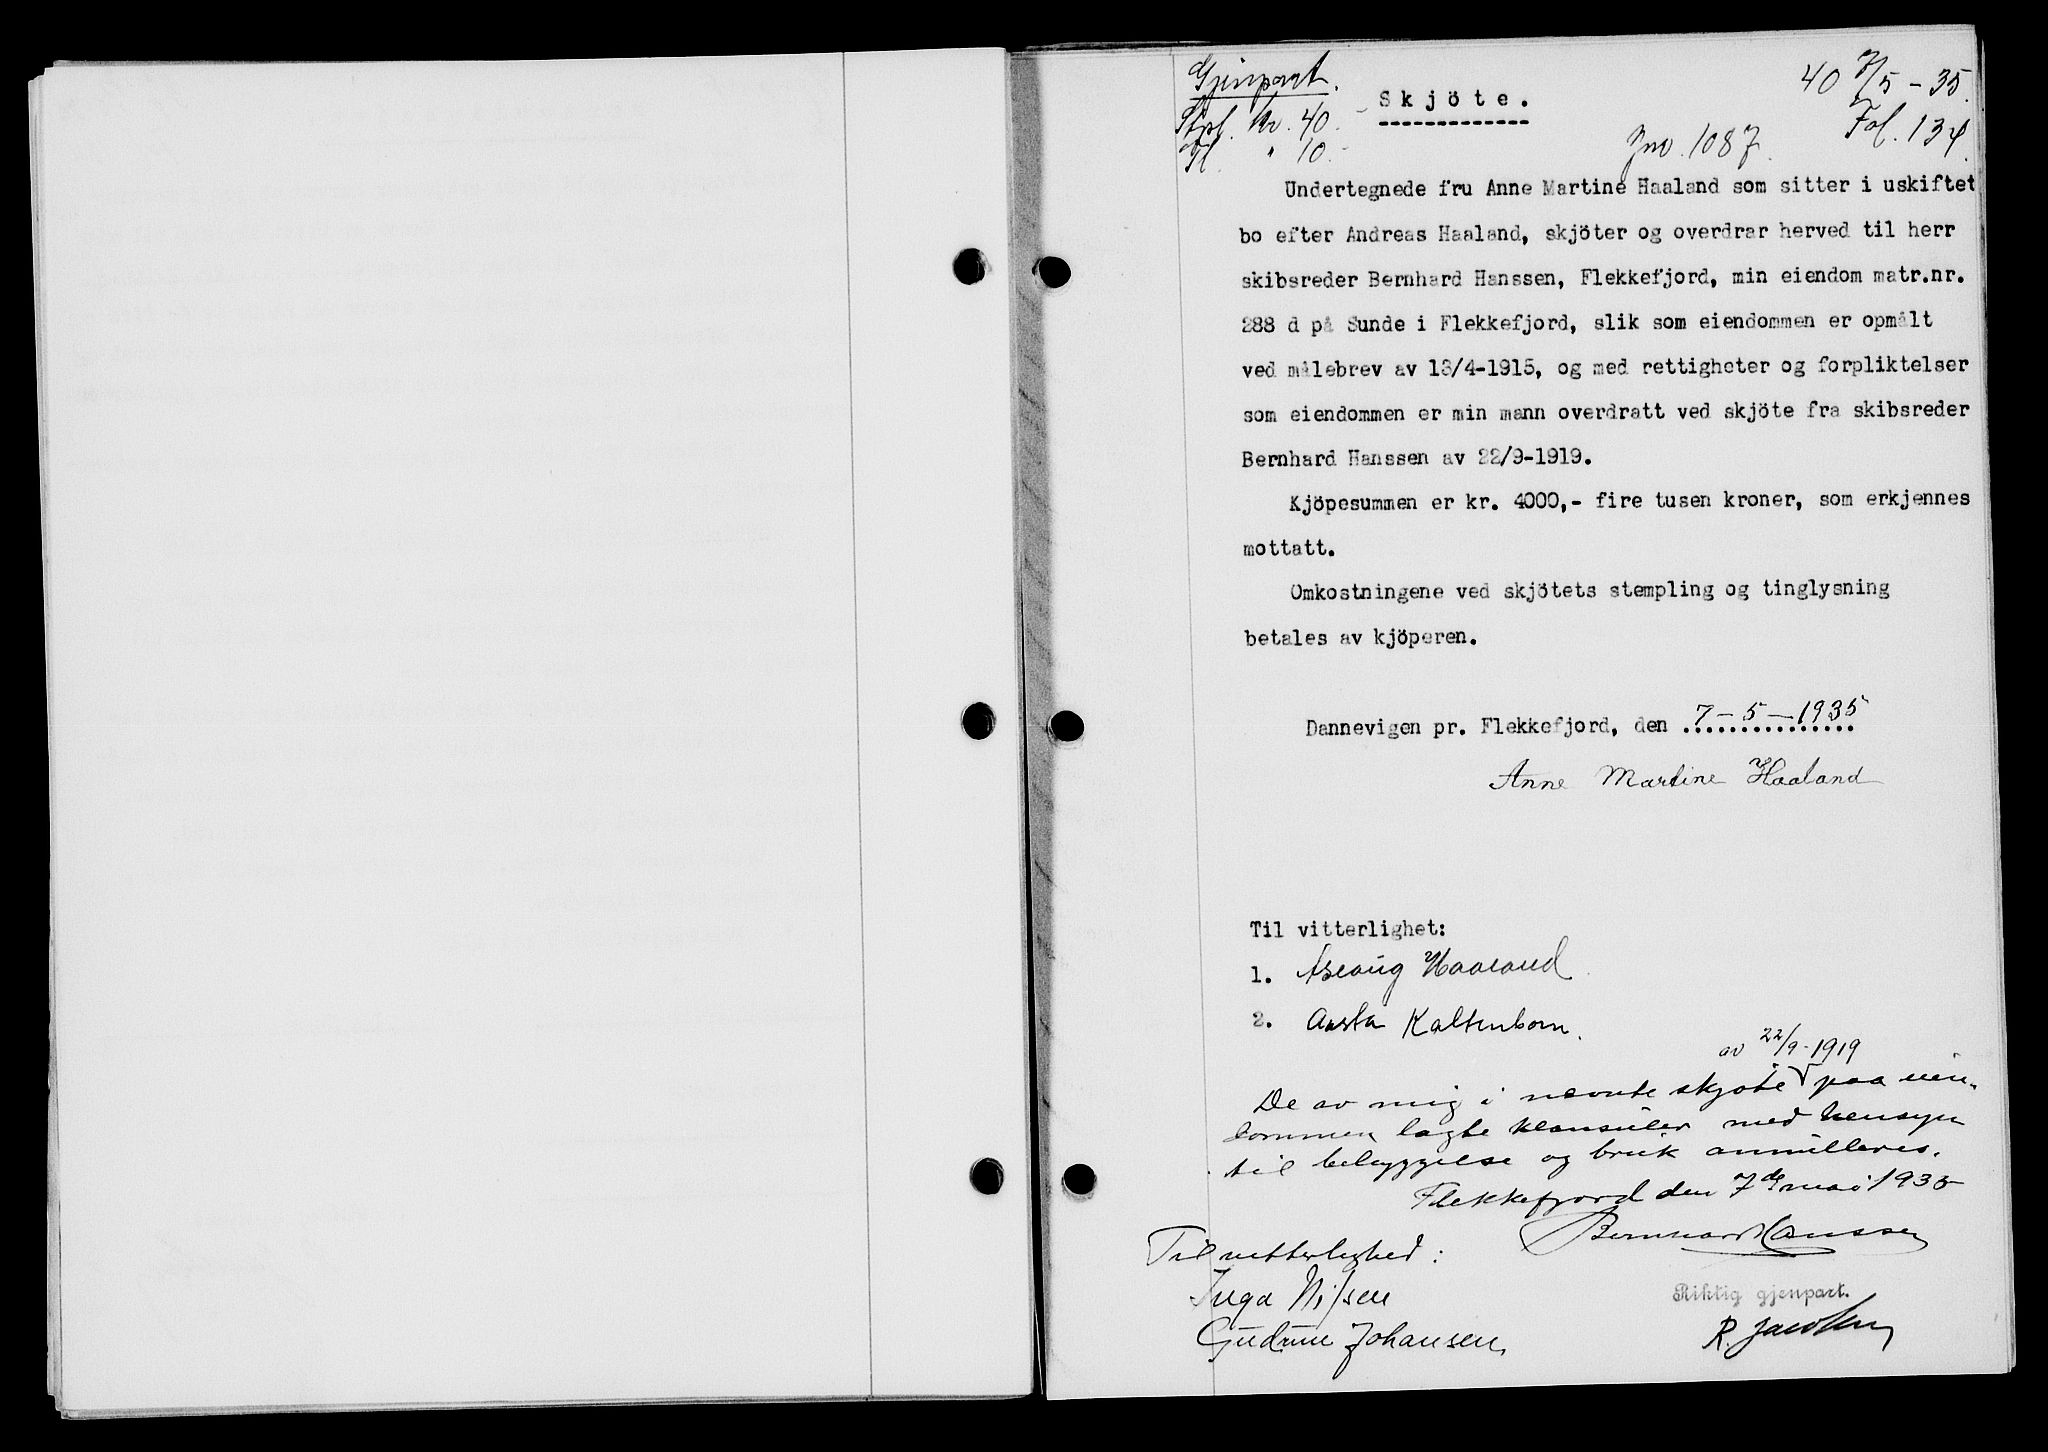 Gjenpart.
Stpl. kr. 40.-
Tl. " 10.-
Skjöte.
40 7/5-35.
Jnr. 1087.
Fol. 134.
Undertegnede fru Anne Martine Haaland som sitter i uskiftet
bo efter Andreas Haaland, skjöter og overdrar herved til herr
skibsreder Bernhard Hanssen, Flekkefjord, min eiendom matr.nr.
288 d på Sunde i Flekkefjord, slik som eiendommen er opmålt
ved målebrev av 13/4-1915, og med rettigheter og forpliktelser
som eiendommen er min mann overdratt ved skjöte fra skibsreder
Bernhard Hanssen av 22/9-1919.
Kjöpesummen er kr. 4000,- fire tusen kroner, som erkjennes
mottatt.
Omkostningene ved skjötets stempling og tinglysning
betales av kjöperen.
Dannevigen pr. Flekkefjord, den 7-5-1935
Anne Martine Haaland
Til vitterlighet:
1. Aslaug Haaland.
2. Kaltenborn.
av 22/9-1919
De av mig i nevnte skjøte paa eien-
dommen lagte klausuler med hensyn
til bebyggelse og bruk annulleres.
Flekkefjord den 7de mai 1935
Bernhard Hanssen
Til vitterlighed:
Inga Nilsen
Gudrun Johansen.
Riktig gjenpart.
R. Jacobsen